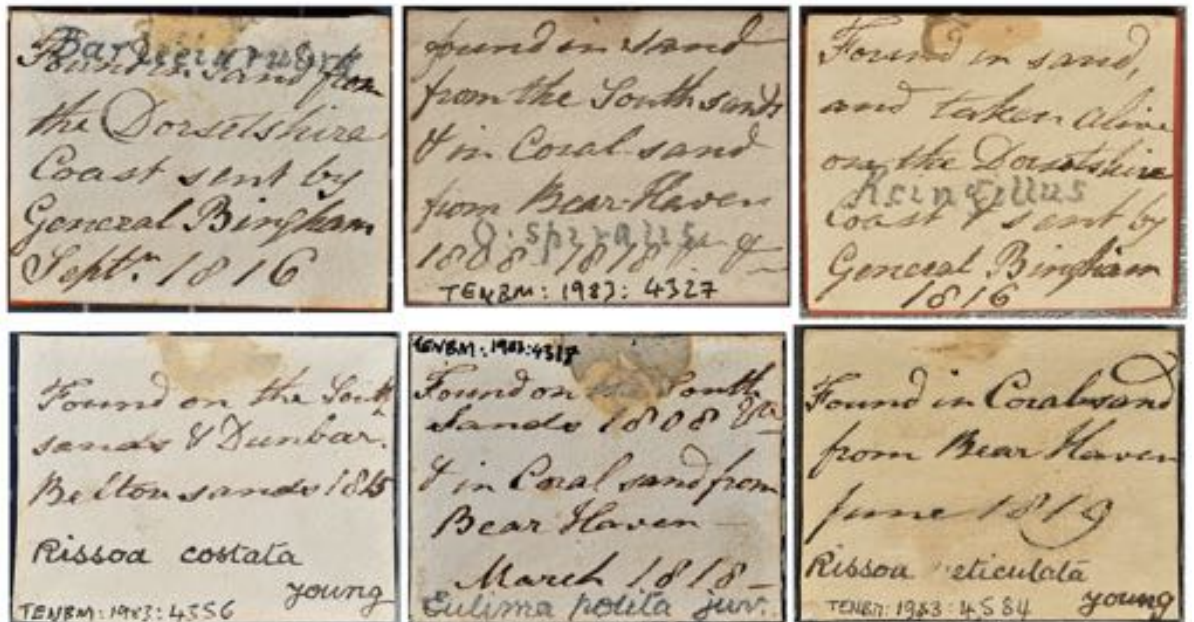 Barleeia rubra
Found in sand from
the Dorsetshire
Coast sent by
General Bingham
Septr. 1816
found in sand
from the South sands
& in Coral sand
from Bear Haven
O. spiralis
1808 1818 &
TENBM: 1983: 4327
Found in sand,
and taken alive
on the Dorsetshire
Coast & sent by
General Bingham
1816
Found on the South
sands & Dunbar.
Belton sands 1815
Rissoa costata
young
TENBM: 1983: 4356
TENBM: 1983: 4317
Found on the South
Sands 1808 &c
& in Coral sand from
Bear Haven
March 1818
Eulima polita juv.
Found in Coral sand
from Bear Haven
June 1819
Rissoa eticulata
young
TENBM: 1983: 4584